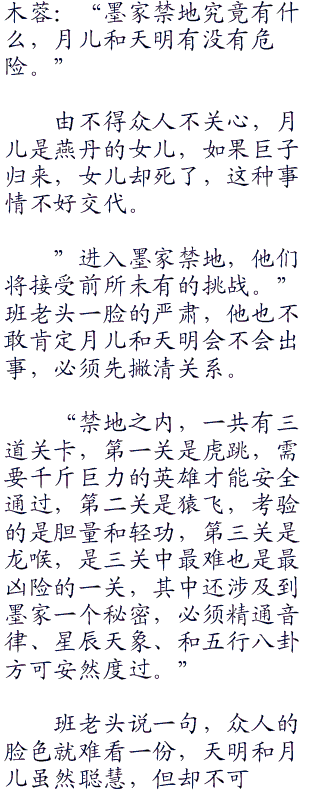 木蓉：“墨家禁地究竟有什
么，月儿和天明有没有危
险。”
由不得众人不关心，月
儿是燕丹的女儿，如果巨子
归来，女儿却死了，这种事
情不好交代。
”进入墨家禁地，他们
将接受前所未有的挑战。”
班老头一脸的严肃，他也不
敢肯定月儿和天明会不会出
事，必须先撇清关系。
“禁地之内，一共有三
道关卡，第一关是虎跳，需
要千斤巨力的英雄才能安全
通过，第二关是猿飞，考验
的是胆量和轻功，第三关是
龙喉，是三关中最难也是最
凶险的一关，其中还涉及到
墨家一个秘密，必须精通音
律、星辰天象、和五行八卦
方可安然度过。”
班老头说一句，众人的
脸色就难看一份，天明和月
儿虽然聪慧，但却不可